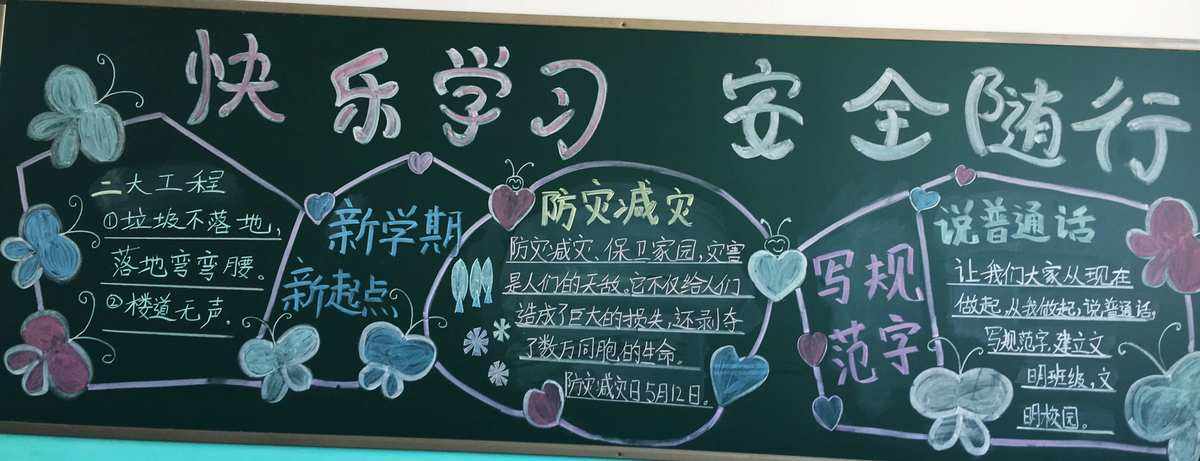 快乐学习 安全随行
二大工程
①垃圾不落地,
落地弯弯腰。
②楼道无声.
新学期
新起点
防灾减灾
防灾减灾、保卫家园,灾害
是人们的天敌。它不仅给人们
造成了巨大的损失,还剥夺
了数万同胞的生命。
防灾减灾日5月12日。
写规
范字
说普通话
让我们大家从现在
做起,从我做起,说普通话,
写规范字,建立文
明班级,文
明校园。